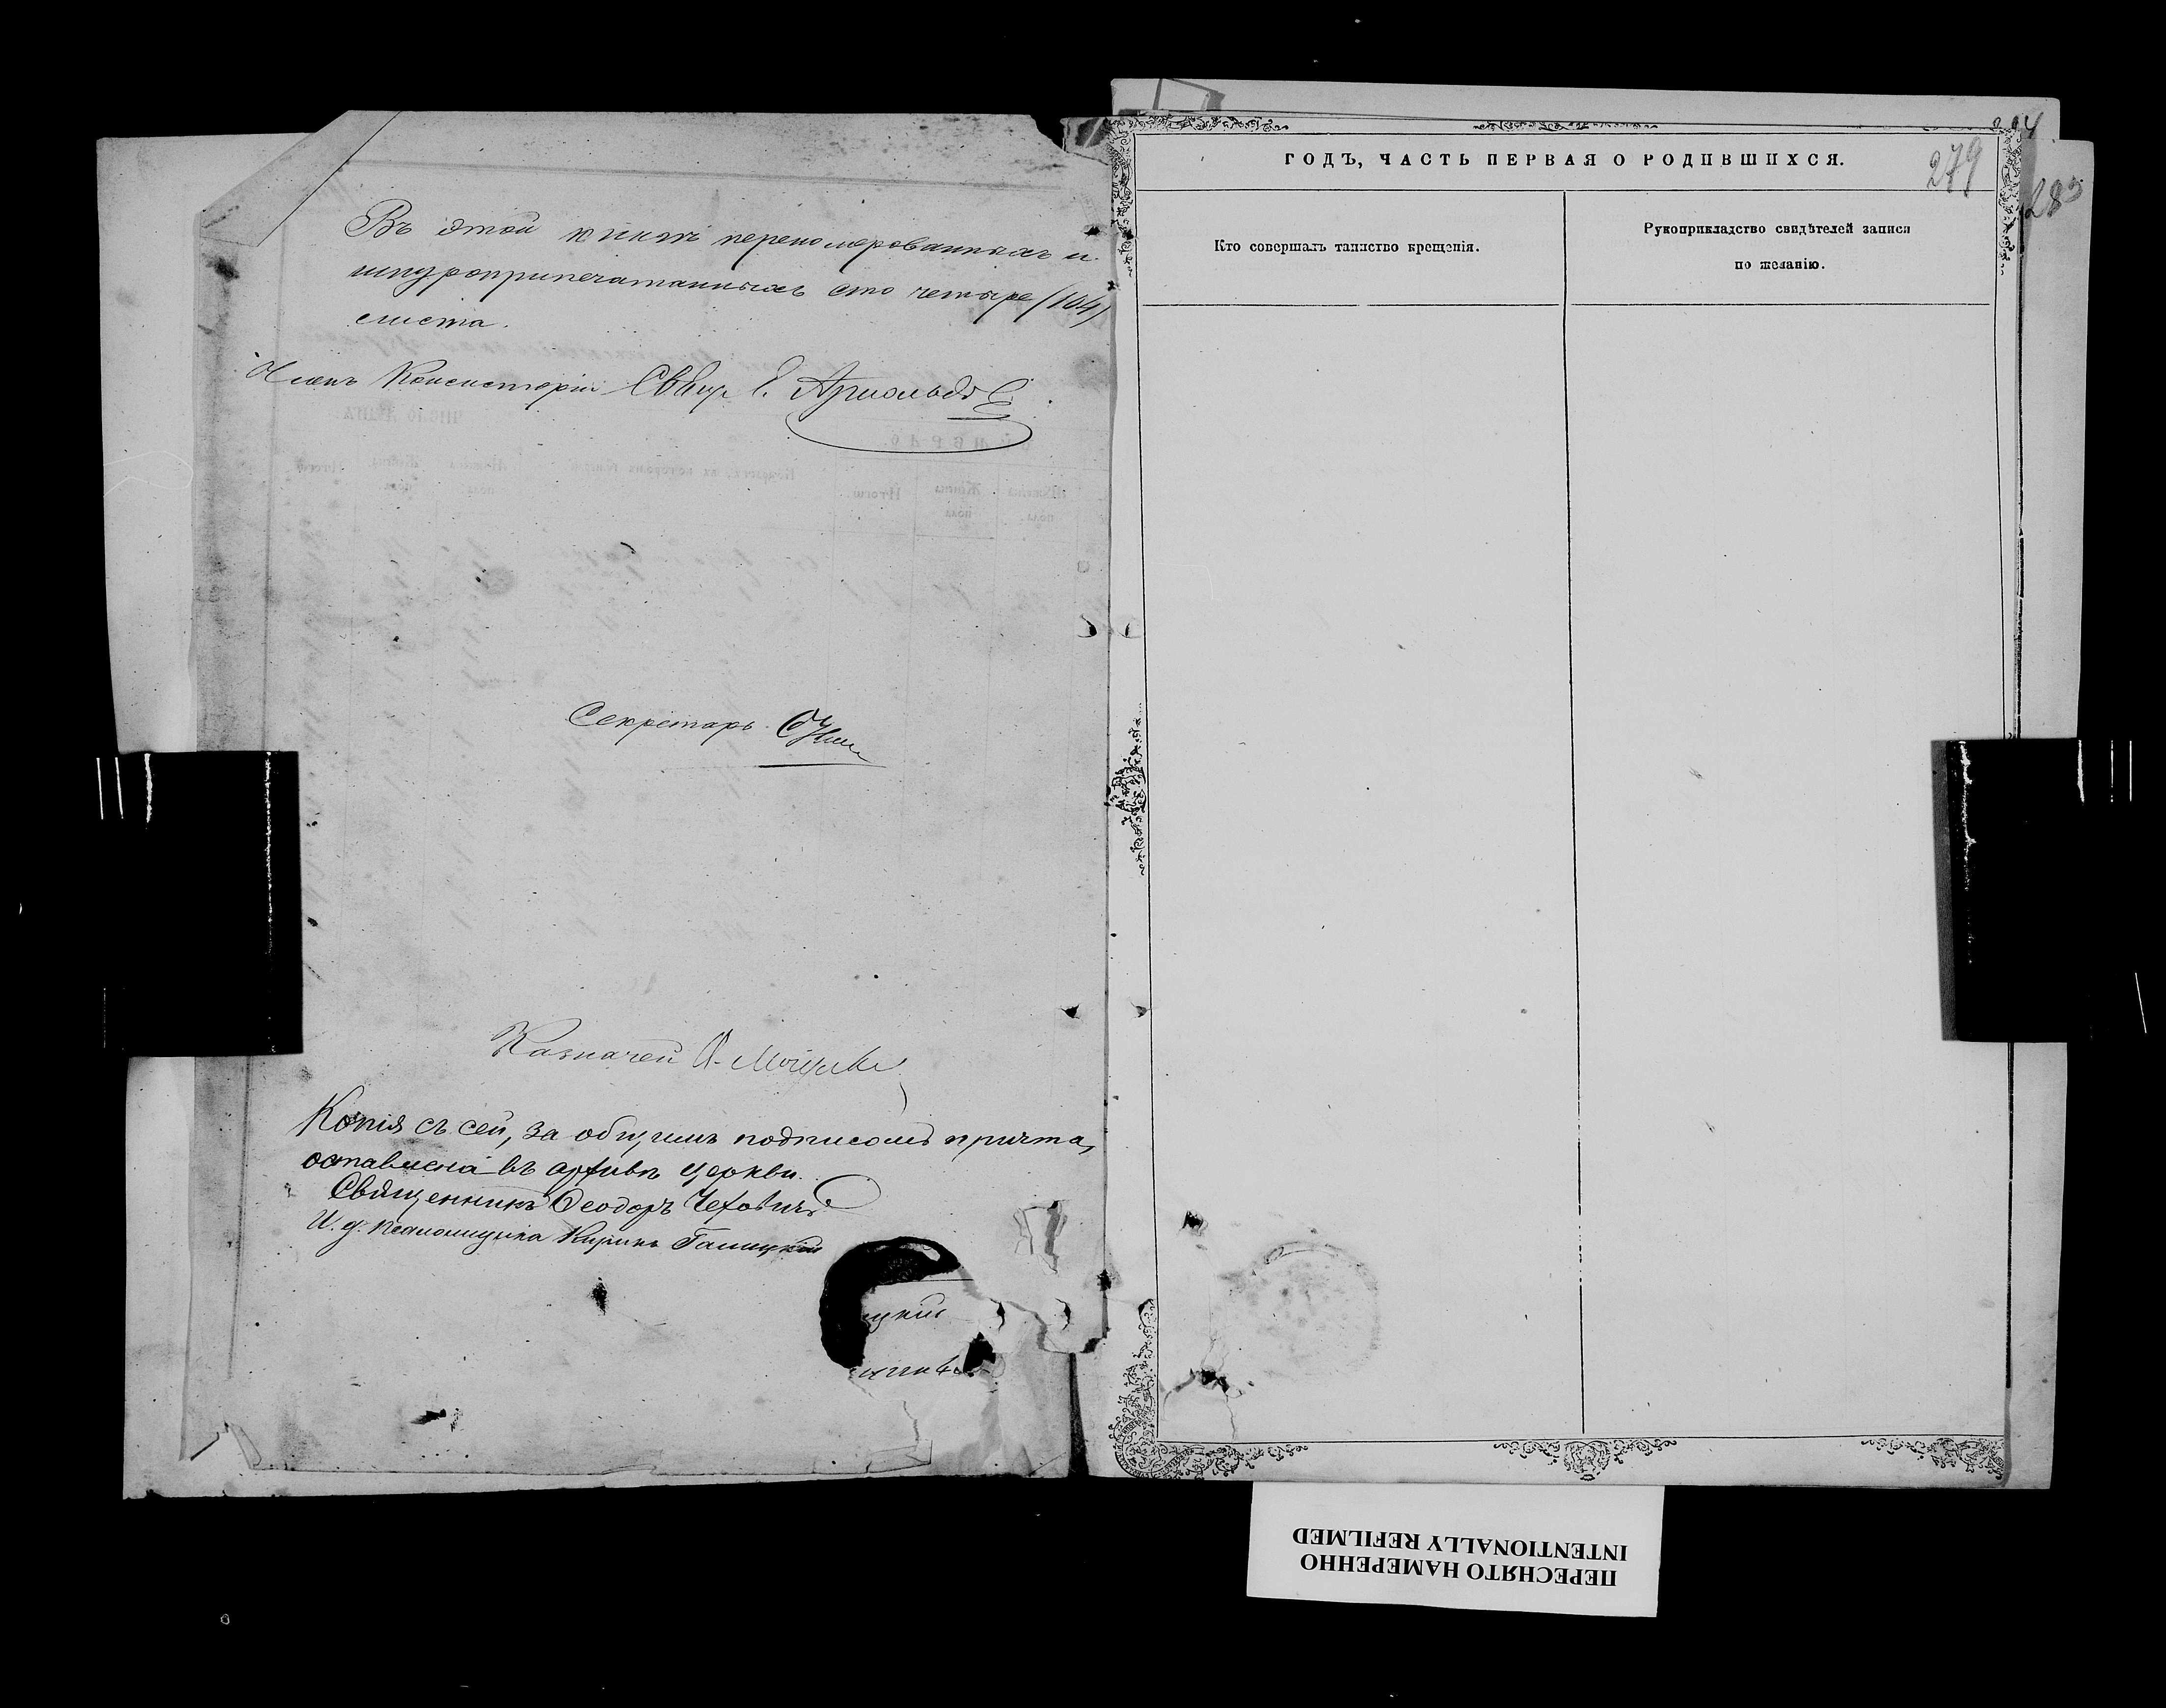 Въ этой книгѣ перенумерованныхъ и
шнуроприпечатанныхъ сто четыре /104/
листа.
Членъ Консисторіи Свящ. Е.
Секретарь
Казначей
Копія съ сей, за общимъ подписомъ причта,
оставлена въ архивѣ церкви.
Священникъ Ѳеодоръ Чеховичъ
И. д. псаломщика
цкій
ГОДЪ, ЧАСТЬ ПЕРВАЯ О РОДИВШИХСЯ.
279
Кто совершалъ таинство крещенія.
Рукоприкладство свидѣтелей записи
по желанію.
ПЕРЕСНЯТО НАМЕРЕННО
INTENTIONALLY REFILMED